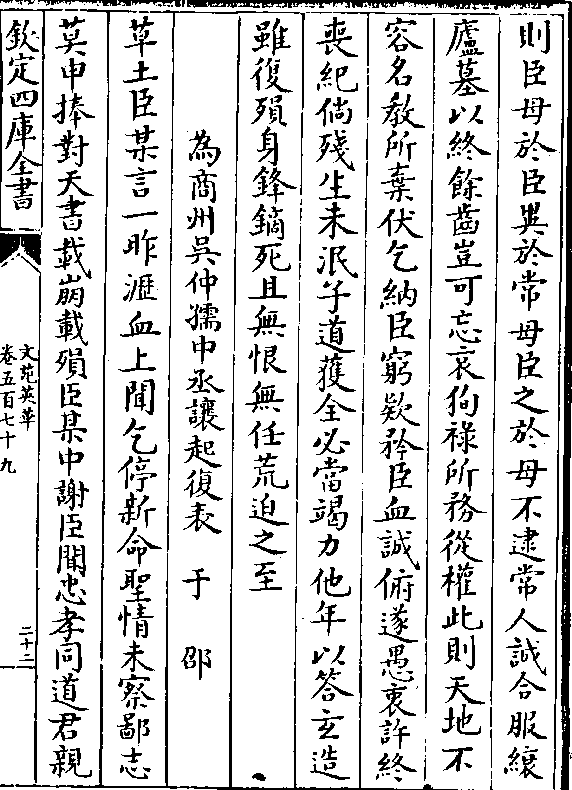 則臣母於臣異於常母臣之於母不逮常人誠合服縗
廬墓以終餘齒豈可忘哀徇祿所務從權此則天地不
容名教所棄伏乞納臣窮欵矜臣血誠俯遂愚衷許終
喪紀倘殘生未泯子道獲全必當竭力他年以答玄造
雖復殞身鋒鏑死且無恨無任荒迫之至
為商州吳仲孺中丞讓起復表 于邵
草土臣某言一昨瀝血上聞乞停新命聖情未察鄙志
莫申捧對天書載崩載殞臣某中謝臣聞忠孝同道君親
欽定四庫全書
文苑英華
卷五百七十九
二十二